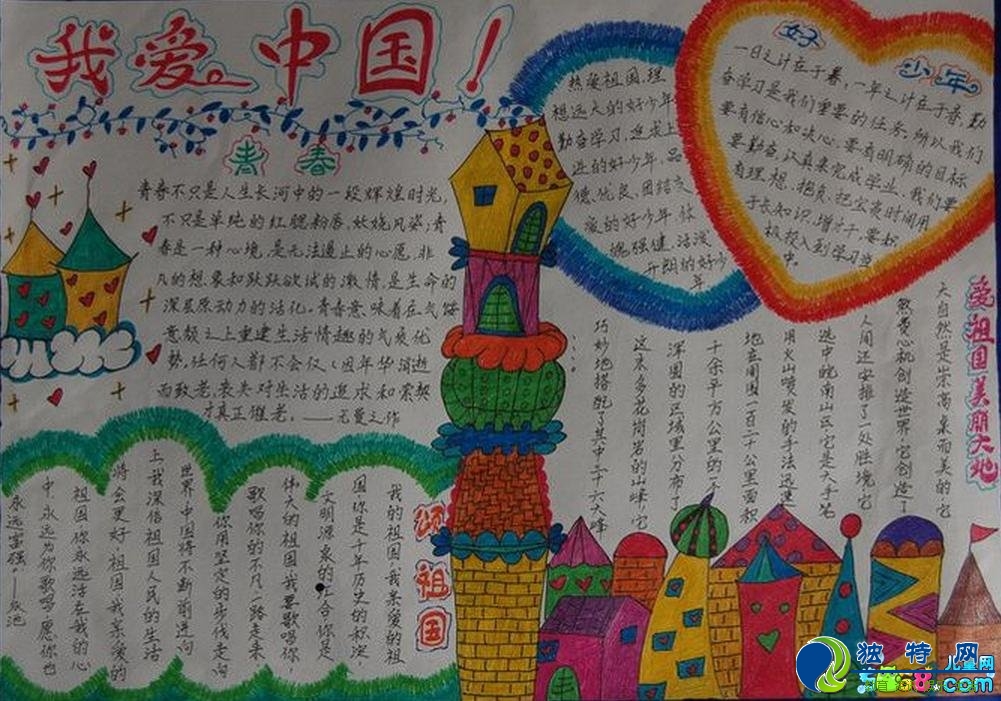 我爱中国！
青春
青春不只是人生长河中的一段辉煌时光，
不只是单纯的红腮粉唇，妖娆风姿；青
春是一种心境，是无法遏止的心愿，非
凡的想象和跃跃欲试的激情，是生命的
深层原动力的活化。青春意味着在气馁
意颓之上重建生活情趣的气质优
势，任何人都不会仅仅因年华消逝
而致老，丧失对生活的追求和索契
才真正催老。——无曼之作
热爱祖国，理
想远大的好少年
勤奋学习，追求上
进的好少年，品
德优良，团结友
爱的好少年，体
魄强健，活泼
开朗的好少
年
好少年
一日之计在于春，一年之计在于春，勤
奋学习是我们重要的任务。所以我们
要有信心和决心。要有明确的目标
要勤奋，认真来完成学业，我们要
有理想，抱负，把宝贵时间用
于长知识，增才干，要积
极投入到学习当
中。
爱祖国美丽大地
大自然是崇高卓而美的。它
煞费心机创造世界，它创造了
人间还安排了一处胜境。它
选中皖南山区它是大手笔
用火山喷发的手法迅速
地在周围一百二十公里面积
千余平方公里的一个
浑圆的区域里分布了
这末多花岗岩的山峰，它
巧妙地搭配了其中三十六大峰
……
颂祖国
我的祖国，我亲爱的祖
国你是千年历史的积淀，
文明源泉的汇合你是
伟大的祖国我要歌唱你，
歌唱你的不凡，一路走来
你用坚定的步伐走向
世界，中国将不断前进向
上我深信祖国人民的生活
将会更好，祖国，我亲爱的
祖国，你永远活在我的心
中，永远为你歌唱，愿你也
永远富强。——永池
独特网
儿童网